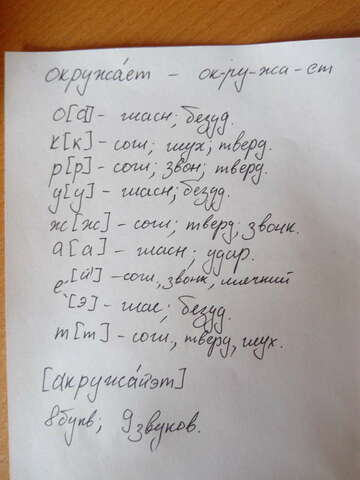 окружа́ет – ок-ру-жа-ет
о[а] – гласн; безуд.
к[к] – согл; глух; тверд.
р[р] – согл; звон; тверд.
у[у] – гласн; безуд.
ж[ж] – согл; тверд; звонк.
а[а] – гласн; удар.
е [й'] – согл, звонк, мягкий
[э] – глас; безуд.
т[т] – согл, тверд, глух.
[акружа́йэт]
8букв; 9звуков.